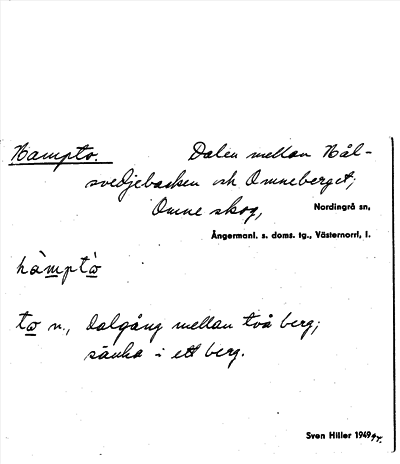 Hampto. Dalen mellan Hål-
svedjebacken och Omneberget;
Omne skog, Nordingrå sn,
Ångermanl. s. doms. tg., Västernorrl, l.
hàmptò
to n., dalgång mellan två berg;
sänka i ett berg.
Sven Hiller 1949